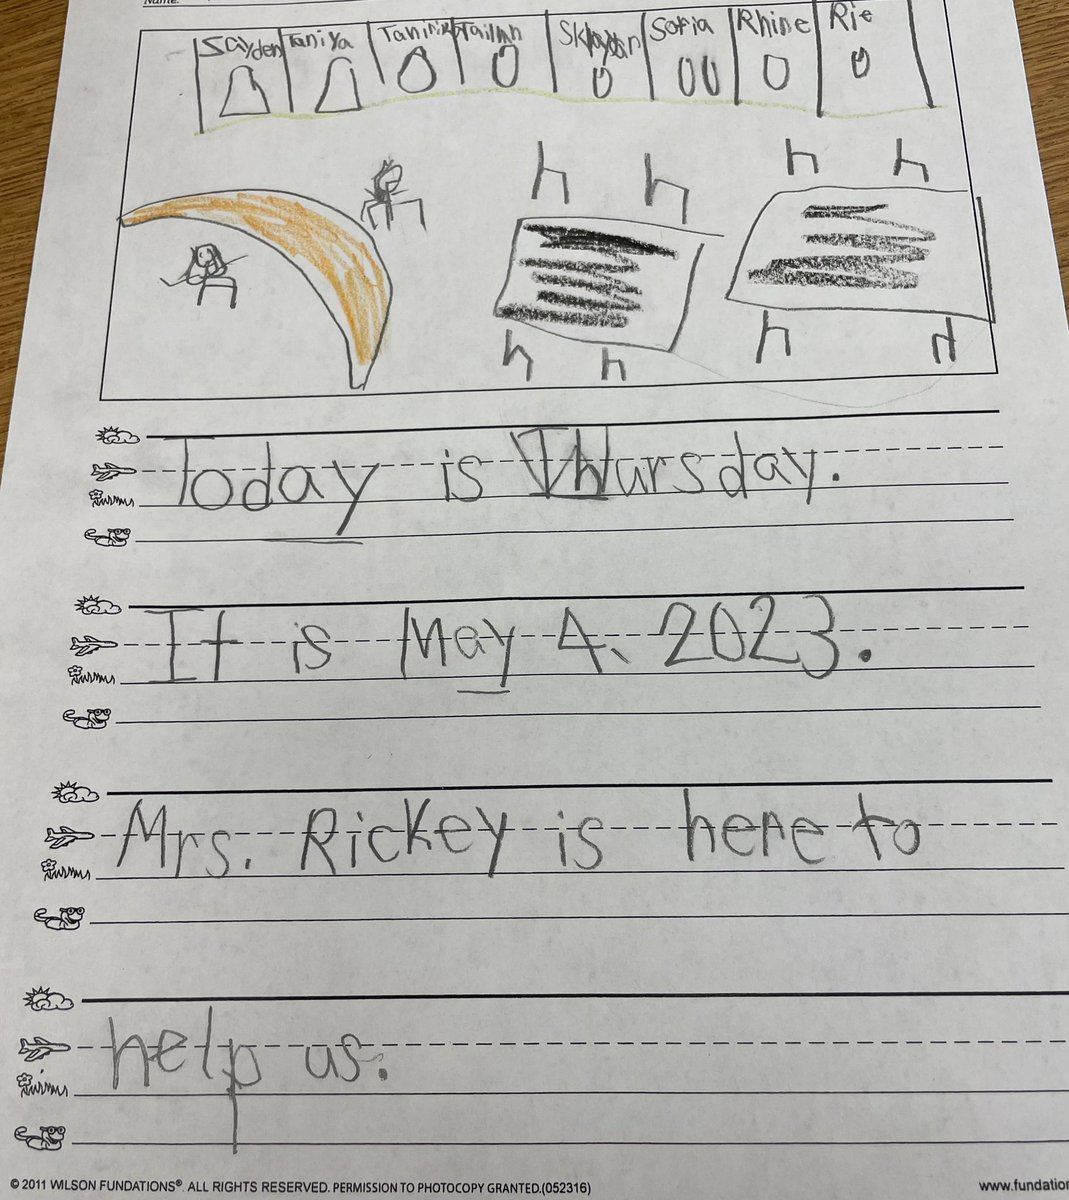 Name:
Sayden Taniya Tailyn Sofia Rhine Rie
Today is Thursday.
It is May 4, 2023.
Mrs. Rickey is here to
help us.
© 2011 WILSON FUNDATIONS®. ALL RIGHTS RESERVED. PERMISSION TO PHOTOCOPY GRANTED.(052316) www.fundation